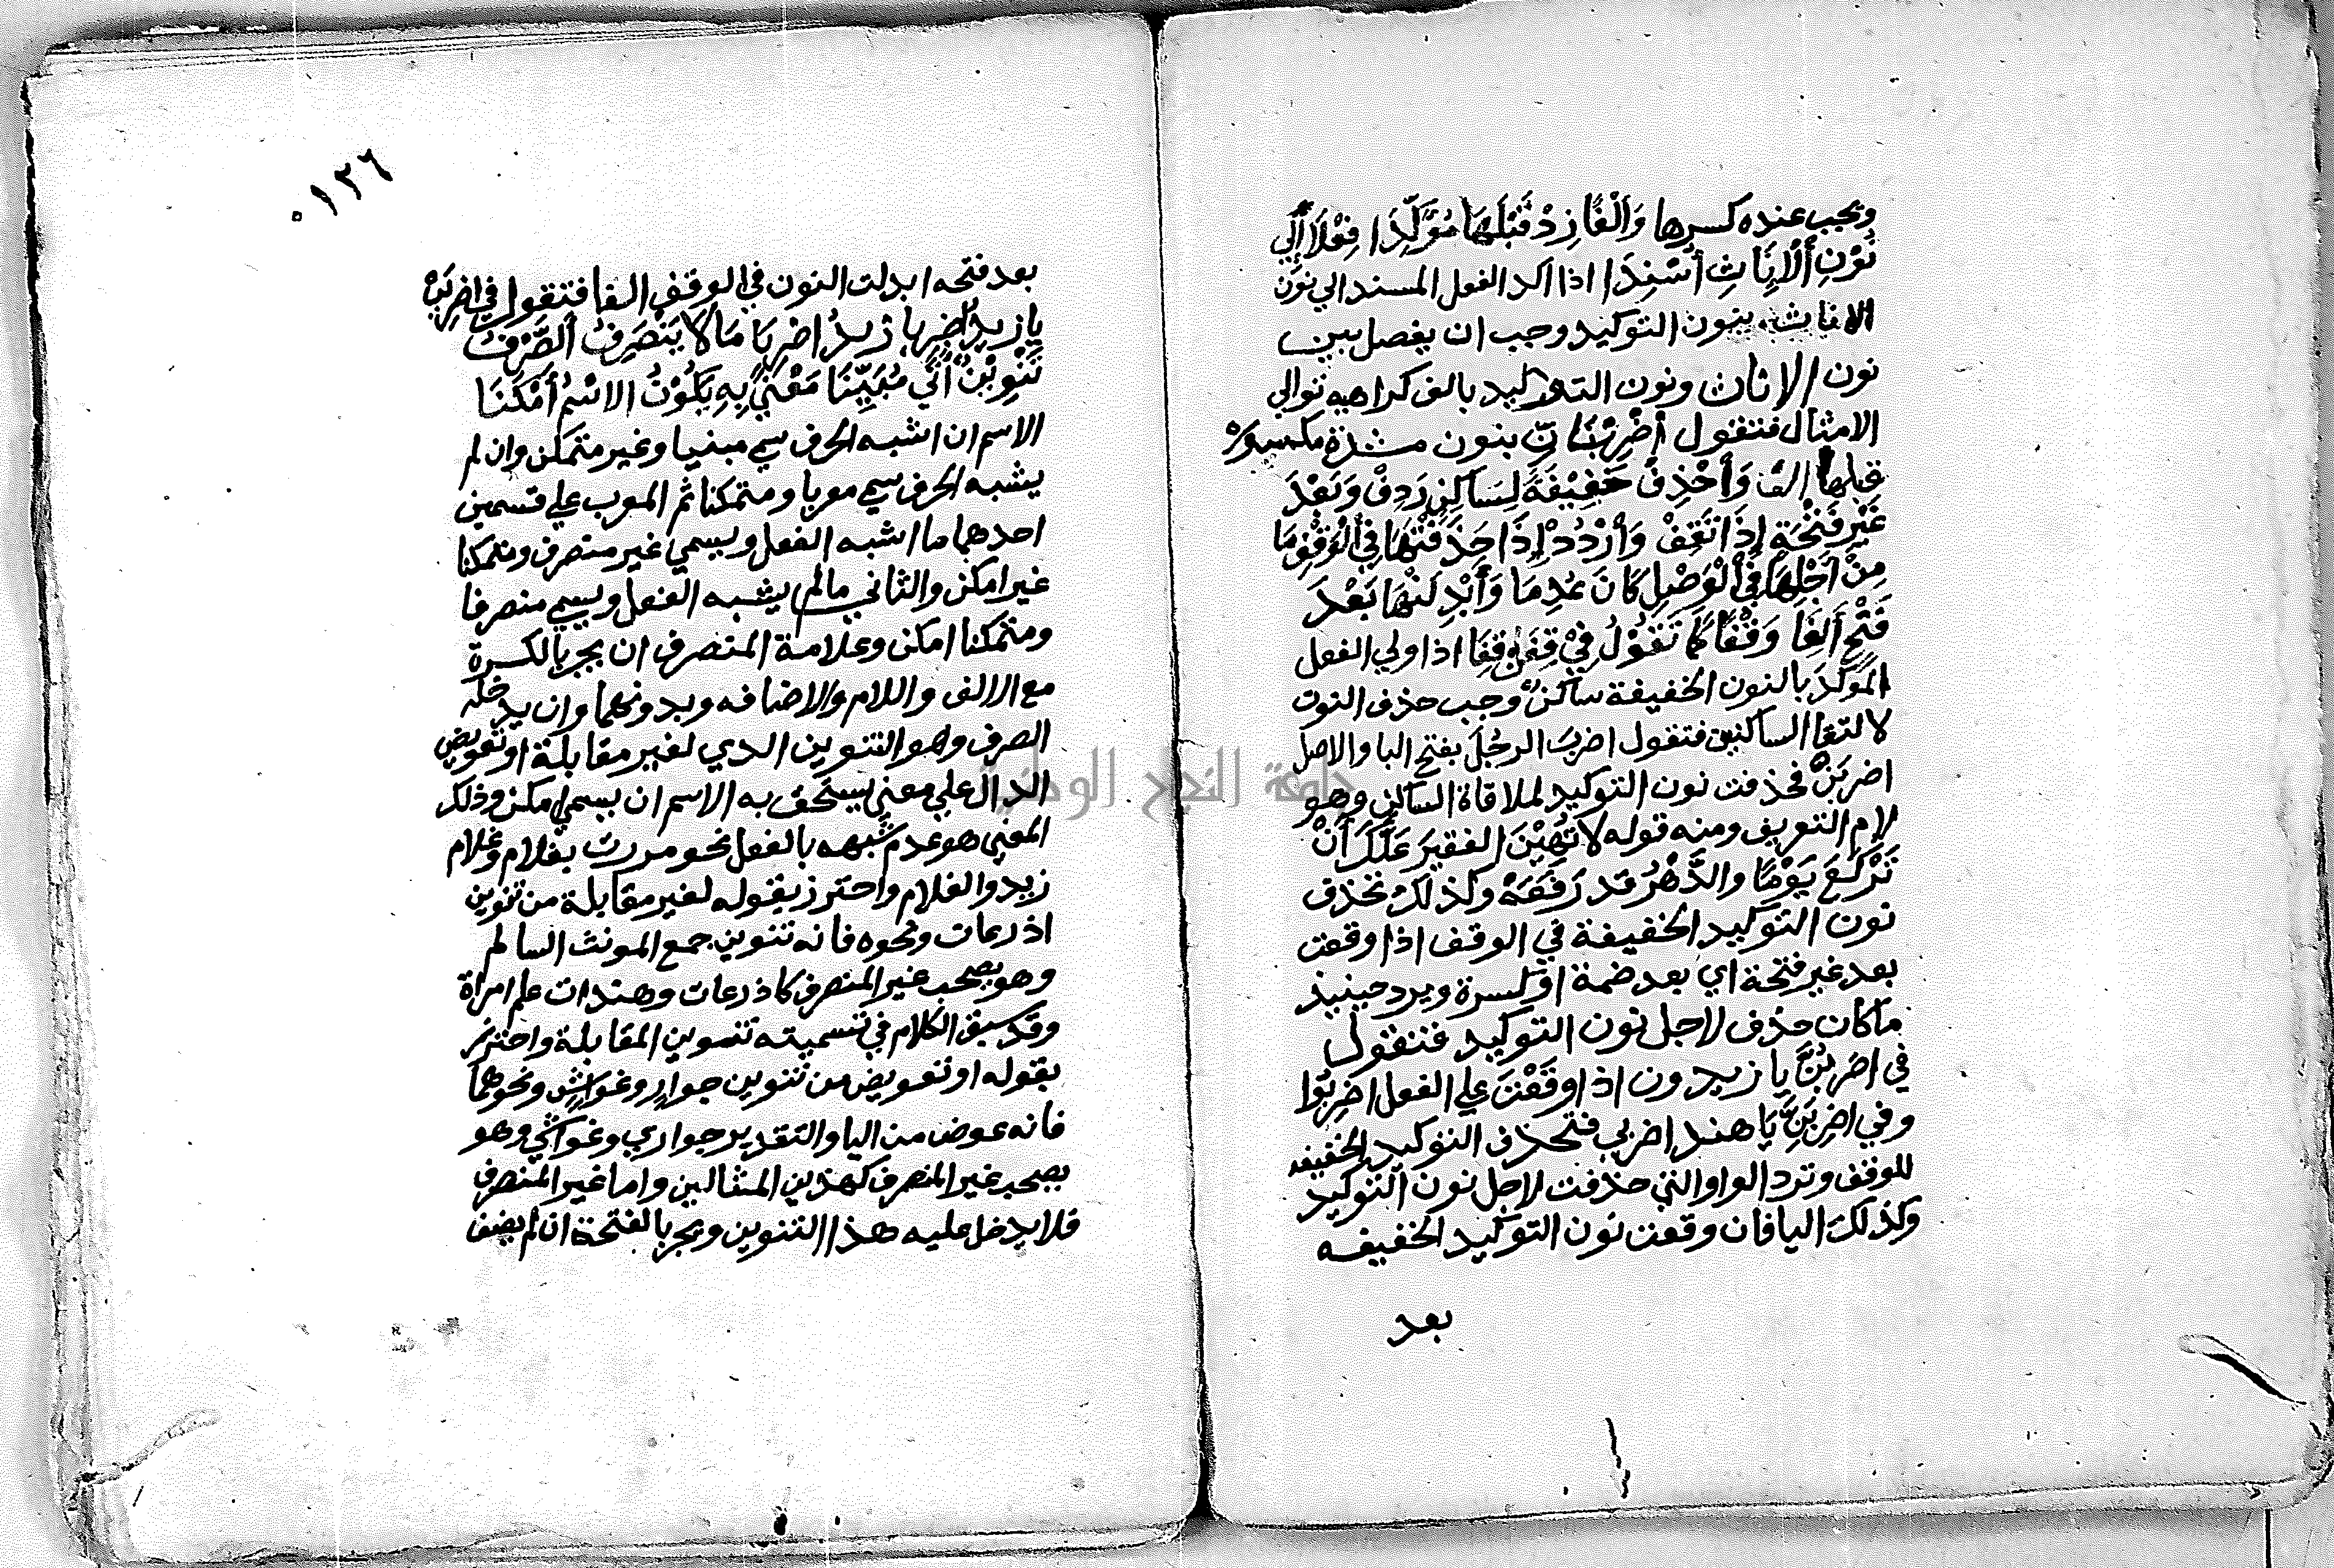 ويجب عنده كسرها وَأَلْفًا زِدْ قَبْلَهَا مُؤَكِّدَا فِعْلًا إِلَي
نُوْنِ ألْإِنَاثِ أُسْنِدَا اذا اكد الفعل المسند الي نون
الاناث بنون التوكيد وجب ان يفصل بين
نون الاناث ونون التوكيد بالف كراهيه توالي
الامثال فتقول أضْرِبْنَانِّ بنون مشددة مكسورة
قبلها الف وَأحْذِفْ خَفِيْفَةً لِسَاكِنٍ رَدِفْ وَبَعْدَ
غَيْرِ فَتْحَةٍ إِذَا تَقِفْ وَأرْدُدْ إِذَا حَذَفْتَهَا فِي ألْوَقْفِ مَا
مِنْ أجْلِهَا فِي ألْوَصْلِ كَانَ عُدِمَا وَأَبْدِلَنْهَا بَعْدَ
فَتْحٍ أَلِفَا وَقْفًا كَمَا تَقُوْلُ فِيْ قِفَنْ قِفَا اذا ولي الفعل
المُوَكَّدَ بالنون الخفيفة ساكنٌ وجب حذف النون
لالتقا الساكنين فتقول اضربَ الرجُلَ بفتح البا والاصل
اضربَنْ فحذفت نون التوكيد لملاقاة الساكن وهو
لام التعريف ومنه قوله لا تُهِيْنَ الفقيرَ عَلَّكَ أَنْ
تَرْكَعَ يَوْمًا والدَّهْرُ قد رَفَعَهْ وكذلك تحذف
نون التوكيد الخفيفة في الوقف اذا وقعت
بعد غير فتحة اي بعد ضمة او كسرة ويرد حينيذ
ما كان حذف لاجل نون التوكيد فتقول
في اضربُنَّ يا زيدون اذا وقَفْتَ علي الفعل اضربُوا
وفي اضربِنَّ يا هند اضربي فتحذف النوكيد الخفيفه
للوقف وترد الواو التي حذفت لاجل نون التوكيد
وكذلك اليا فان وقعت نون التوكيد الخفيفه
بعد
١٢٦
بعد فتحه ابدلت النون في الوقف الفا فتقول في اضربَنْ
يا زيد اضربا زيدُ اضربَا مَا لَا يَنْصَرِفُ ألصَّرْفُ
تَنْوِيْنٌ أَتَي مُبَيِّنَا مَعْنًي بِهِ يَكُوْنُ الاسْمُ أَمْكَنَا
الاسم ان اشبه الحرف سمي مبنيا وغير متمكن وان لم
يشبه الحرف سمي معربا ومتمكنا ثم المعرب علي قسمين
احدهما ما اشبه الفعل ويسمي غير منصرف ومتمكنا
غير امكن والثاني ما لم يشبه الفعل ويسمي منصرفا
ومتمكنا امكن وعلامة المنصرف ان يجر بالكسرة
مع الالف واللام والاضافه وبدونهما وان يدخله
الصرف وهو التنوين الدي لغير مقابلة او تعويض
الدال علي معنيً يستحق به الاسم ان يسمي امكن وذلك
المعني هو عدم شبهه بالفعل نحو مررت بغلام وغلام
زيد والغلام واحترز بقوله لغير مقابلة من تنوين
اذرعات ونحوه فانه تنوين جمع المونث السالم
وهو يصحب غير المنصرف كاذرعات وهندات علم امراة
وقد سبق الكلام في تسميته تنوين المقابلة واحترز
بقوله او تعويض من تنوين جوارٍ وغواشٍ ونحوهما
فانه عوض من اليا والتقدير جواري وغواشي وهو
يصحب غير المنصرف كهذين المثالين واما غير المنصرف
فلا يدخل عليه هذا التنوين ويجر بالفتحة ان لم يضف
جامعة النجاح الوطنية